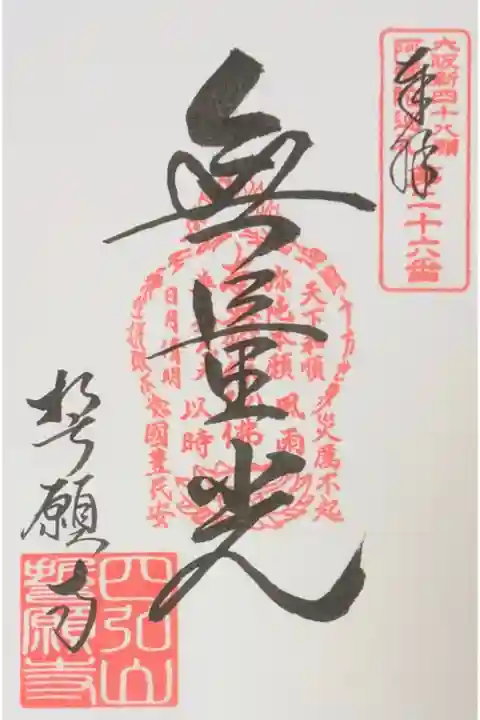 奉拝
大阪新四十八願
第二十六番
無量光
天下和順
日月清明
風雨
以時
災厲不起
國豊民安
誓願寺
四弘山
誓願寺